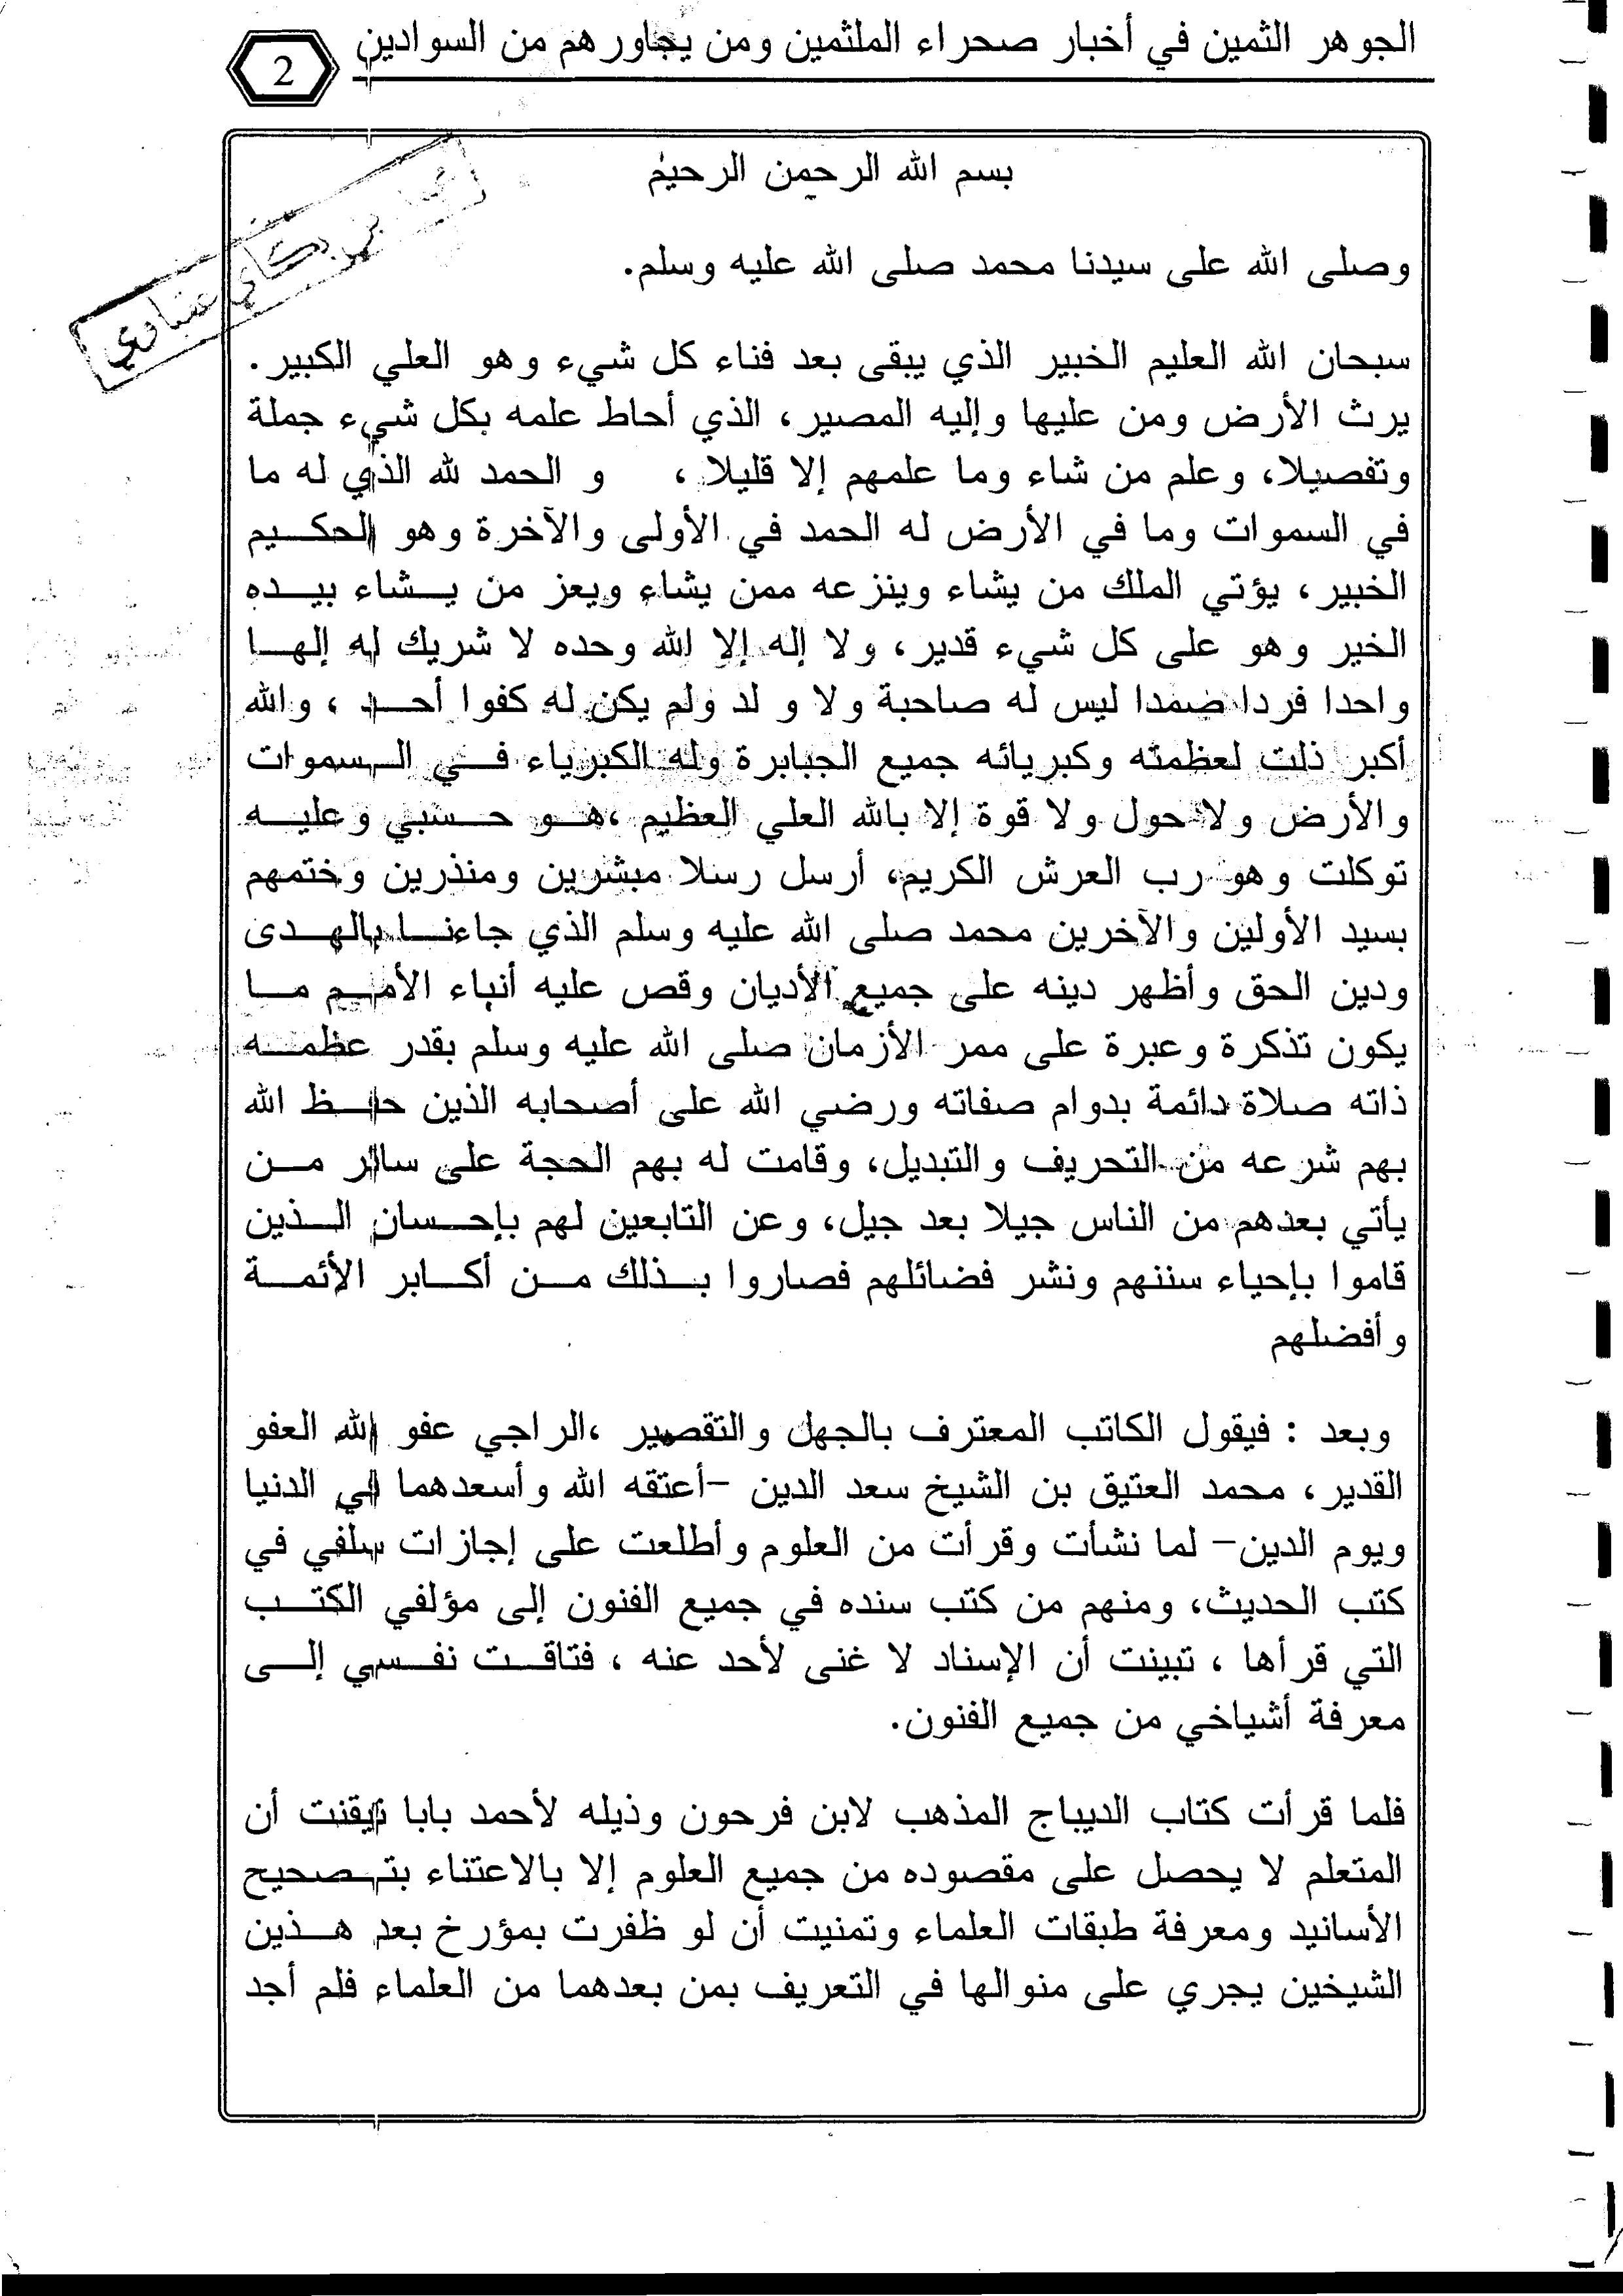 الجوهر الثمين في أخبار صحراء الملثمين ومن يجاورهم من السوادين
2
بسم الله الرحمن الرحيم
وصلى الله على سيدنا محمد صلى الله عليه وسلم.
سبحان الله العليم الخبير الذي يبقى بعد فناء كل شيء وهو العلي الكبير.
يرث الأرض ومن عليها وإليه المصير، الذي أحاط علمه بكل شيء جملة
وتفصيلا، وعلم من شاء وما علمهم إلا قليلا ، و الحمد لله الذي له ما
في السموات وما في الأرض له الحمد في الأولى والآخرة وهو الحكيم
الخبير، يؤتي الملك من يشاء وينزعه ممن يشاء ويعز من يشاء بيده
الخير وهو على كل شيء قدير، ولا إله إلا الله وحده لا شريك له إلها
واحدا فردا صمدا ليس له صاحبة ولا و لد ولم يكن له كفوا أحد ، والله
أكبر ذلت لعظمته وكبريائه جميع الجبابرة وله الكبرياء في السموات
والأرض ولا حول ولا قوة إلا بالله العلي العظيم ،هو حسبي وعليه
توكلت وهو رب العرش الكريم، أرسل رسلا مبشرين ومنذرين وختمهم
بسيد الأولين والآخرين محمد صلى الله عليه وسلم الذي جاءنا بالهدى
ودين الحق وأظهر دينه على جميع الأديان وقص عليه أنباء الأمم ما
يكون تذكرة وعبرة على ممر الأزمان صلى الله عليه وسلم بقدر عظمه
ذاته صلاة دائمة بدوام صفاته ورضي الله على أصحابه الذين حفظ الله
بهم شرعه من التحريف والتبديل، وقامت له بهم الحجة على سائر من
يأتي بعدهم من الناس جيلا بعد جيل، وعن التابعين لهم بإحسان الذين
قاموا بإحياء سننهم ونشر فضائلهم فصاروا بذلك من أكابر الأئمة
وأفضلهم
وبعد : فيقول الكاتب المعترف بالجهل والتقصير ،الراجي عفو الله العفو
القدير، محمد العتيق بن الشيخ سعد الدين -أعتقه الله وأسعدهما في الدنيا
ويوم الدين- لما نشأت وقرأت من العلوم وأطلعت على إجازات سلفي في
كتب الحديث، ومنهم من كتب سنده في جميع الفنون إلى مؤلفي الكتب
التي قرأها ، تبينت أن الإسناد لا غنى لأحد عنه ، فتاقت نفسي إلى
معرفة أشياخي من جميع الفنون.
فلما قرأت كتاب الديباج المذهب لابن فرحون وذيله لأحمد بابا تيقنت أن
المتعلم لا يحصل على مقصوده من جميع العلوم إلا بالاعتناء بتصحيح
الأسانيد ومعرفة طبقات العلماء وتمنيت أن لو ظفرت بمؤرخ بعد هذين
الشيخين يجري على منوالها في التعريف بمن بعدهما من العلماء فلم أجد